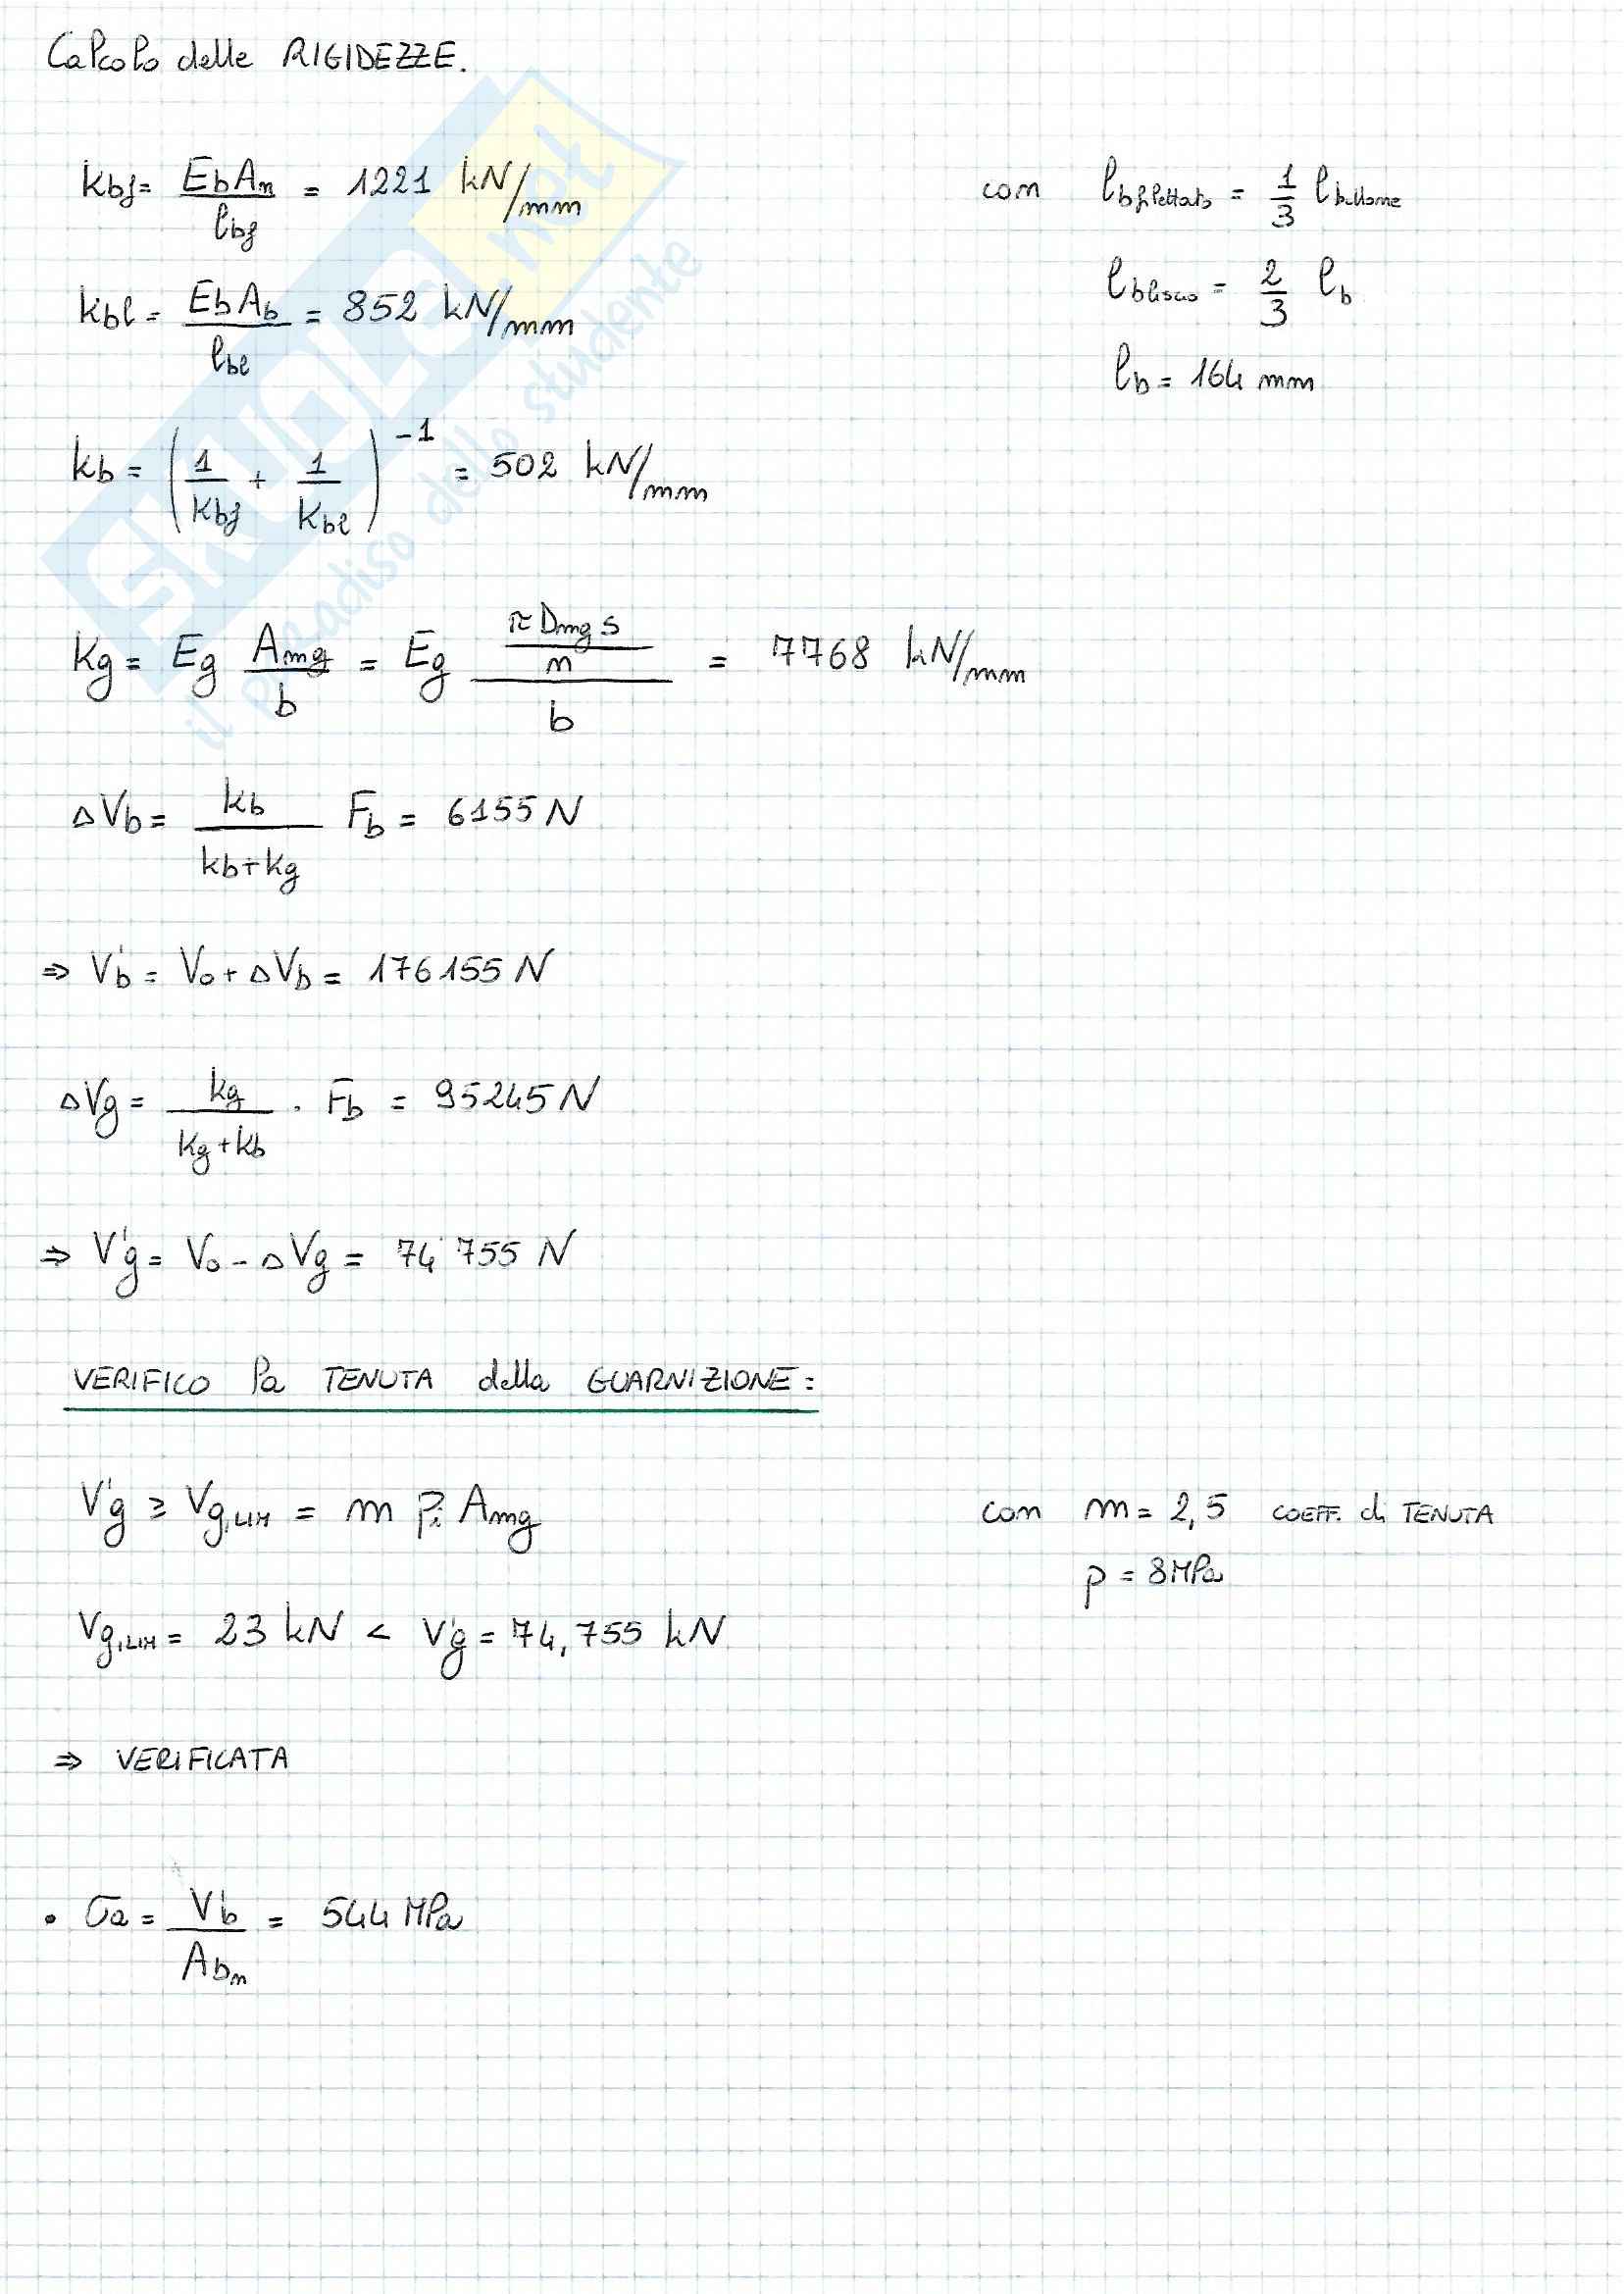 Calcolo delle RIGIDEZZE.
kbf = EbAn / lbf = 1221 kN/mm
con lbfilettato = 1/3 lbullone
kbl = EbAb / lbl = 852 kN/mm
lbliscio = 2/3 lb
lb = 164 mm
kb = (1/kbf + 1/kbl)^-1 = 502 kN/mm
kg = Eg Amg/b = Eg (π Dmg s / n) / b = 7768 kN/mm
ΔVb = kb / (kb+kg) Fb = 6155 N
⇒ V'b = Vo + ΔVb = 176155 N
ΔVg = kg / (kg+kb) · Fb = 95245 N
⇒ V'g = Vo - ΔVg = 74'755 N
VERIFICO la TENUTA della GUARNIZIONE:
V'g ≥ Vg,LIM = m pi Amg
con m = 2,5 COEFF. di TENUTA
p = 8MPa
Vg,LIM = 23 kN < V'g = 74,755 kN
⇒ VERIFICATA
• σa = V'b / Abn = 544 MPa
SKUOLA.net
il paradiso dello studente